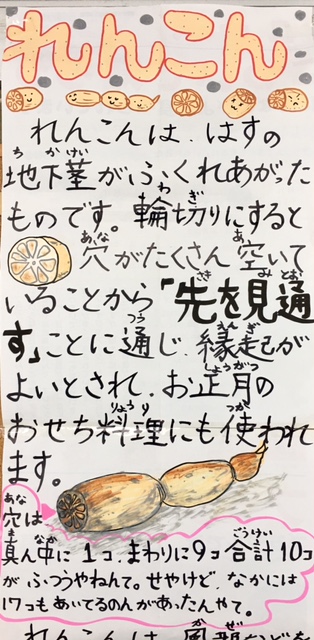 れんこん
れんこんは、はすの
地下茎がふくれあがった
ものです。輪切りにすると
穴がたくさん空いて
いることから「先を見通
す」ことに通じ、縁起が
よいとされ、お正月の
おせち料理にも使われ
ます。
穴は
真ん中に1コ、まわりに9コ 合計10コ
がふつうやねんて。せやけど、なかには
17コもあいてるのんがあったんやて。
れんこんは